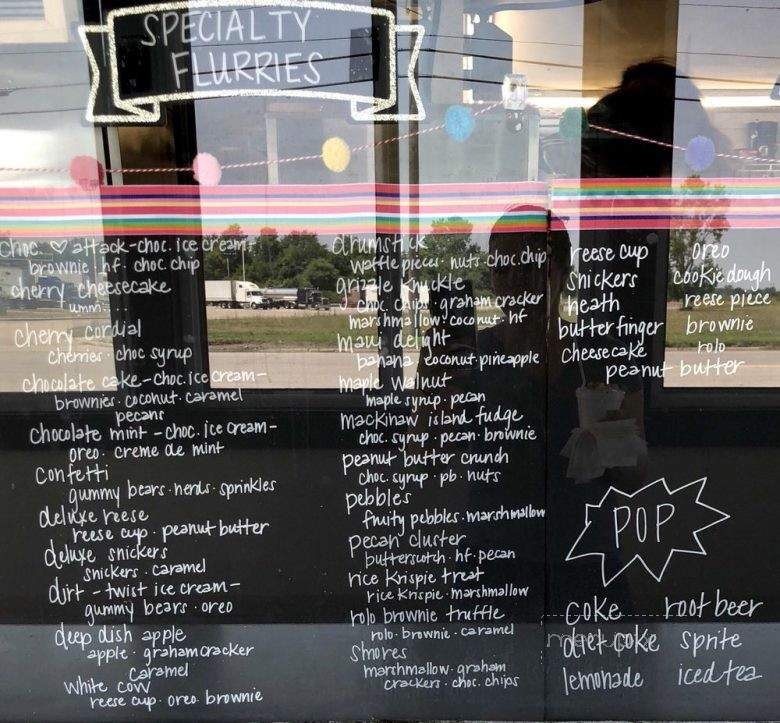 SPECIALTY
FLURRIES
choc. ♡ attack - choc. ice cream -
brownie · hf · choc. chip
cherry cheesecake
ummm...
cherry cordial
cherries · choc syrup
chocolate cake - choc. ice cream -
brownies · coconut · caramel
pecans
chocolate mint - choc. ice cream -
oreo · creme de mint
confetti
gummy bears · nerds · sprinkles
deluxe reese
reese cup · peanut butter
deluxe snickers
snickers · caramel
dirt - twist ice cream -
gummy bears · oreo
deep dish apple
apple · graham cracker
caramel
white cow
reese cup · oreo · brownie
drumstick
waffle pieces · nuts · choc. chip
grizzle knuckle
choc chips · graham cracker
marshmallow · coconut · hf
maui delight
banana · coconut · pineapple
maple walnut
maple syrup · pecan
mackinaw island fudge
choc. syrup · pecan · brownie
peanut butter crunch
choc. syrup · pb · nuts
pebbles
fruity pebbles · marshmallow
pecan cluster
butterscotch · hf · pecan
rice krispie treat
rice krispie · marshmallow
rolo brownie truffle
rolo · brownie · caramel
smores
marshmallow · graham
crackers · choc. chips
reese cup
snickers
heath
butterfinger
cheesecake
oreo
cookie dough
reese piece
brownie
rolo
peanut butter
POP
coke root beer
diet coke sprite
lemonade iced tea